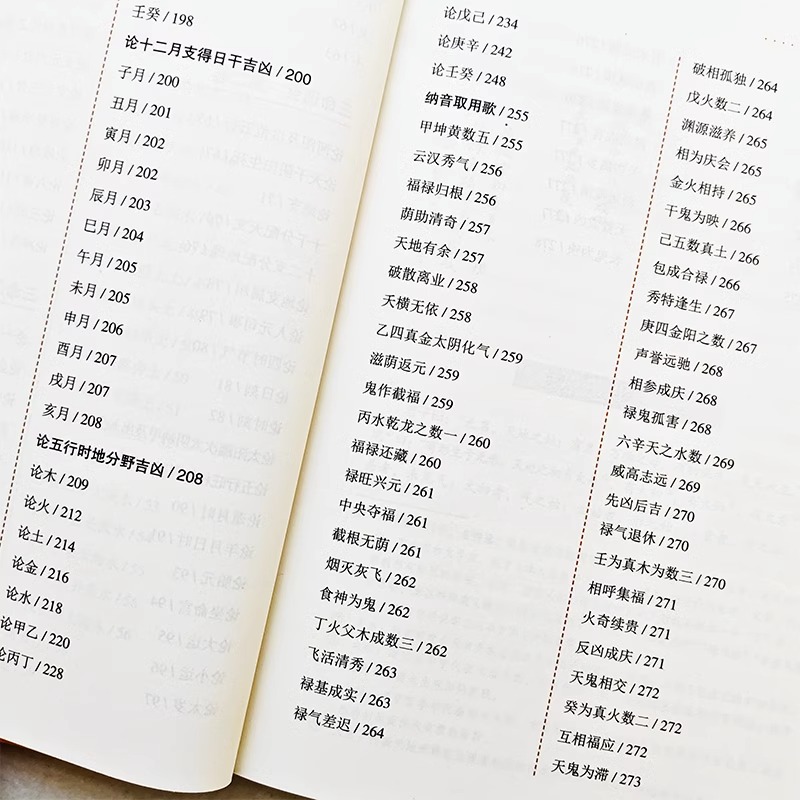 壬癸 / 198
论十二月支得日干吉凶 / 200
子月 / 200
丑月 / 201
寅月 / 202
卯月 / 202
辰月 / 203
巳月 / 204
午月 / 205
未月 / 205
申月 / 206
酉月 / 207
戌月 / 207
亥月 / 208
论五行时地分野吉凶 / 208
论木 / 209
论火 / 212
论土 / 214
论金 / 216
论水 / 218
论甲乙 / 220
论丙丁 / 228
论戊己 / 234
论庚辛 / 242
论壬癸 / 248
纳音取用歌 / 255
甲坤黄数五 / 255
云汉秀气 / 256
福禄归根 / 256
荫助清奇 / 257
天地有余 / 257
破散离业 / 258
天横无依 / 258
乙四真金太阴化气 / 259
滋荫返元 / 259
鬼作截福 / 259
丙水乾龙之数一 / 260
福禄还藏 / 260
禄旺兴元 / 261
中央夺福 / 261
截根无荫 / 261
烟灭灰飞 / 262
食神为鬼 / 262
丁火父木成数三 / 262
飞活清秀 / 263
禄基成实 / 263
禄气差迟 / 264
破相孤独 / 264
戊火数二 / 264
渊源滋养 / 265
相为庆会 / 265
金火相持 / 265
干鬼为映 / 266
己五数真土 / 266
包成合禄 / 266
秀特逢生 / 267
庚四金阳之数 / 267
声誉远驰 / 268
相参成庆 / 268
禄鬼孤害 / 268
六辛天之水数 / 269
威高志远 / 269
先凶后吉 / 270
禄气退休 / 270
壬为真木为数三 / 270
相呼集福 / 271
火奇续贵 / 271
反凶成庆 / 271
天鬼相交 / 272
癸为真火数二 / 272
互相福应 / 272
天鬼为滞 / 273